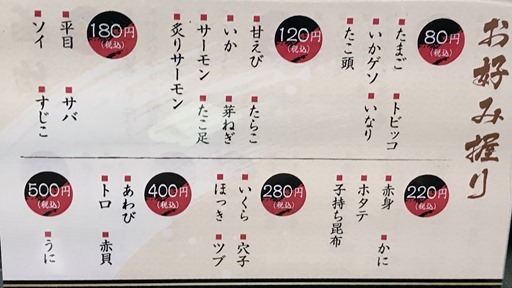 お好み握り
80円(税込)
たまご トビッコ
いかゲソ いなり
たこ頭
120円(税込)
甘えび たらこ
いか 芽ねぎ
サーモン たこ足
炙りサーモン
180円(税込)
平目 サバ
ソイ すじこ
220円(税込)
赤身 かに
ホタテ
子持ち昆布
280円(税込)
いくら 穴子
ほっき ツブ
400円(税込)
あわび
トロ 赤貝
500円(税込)
うに